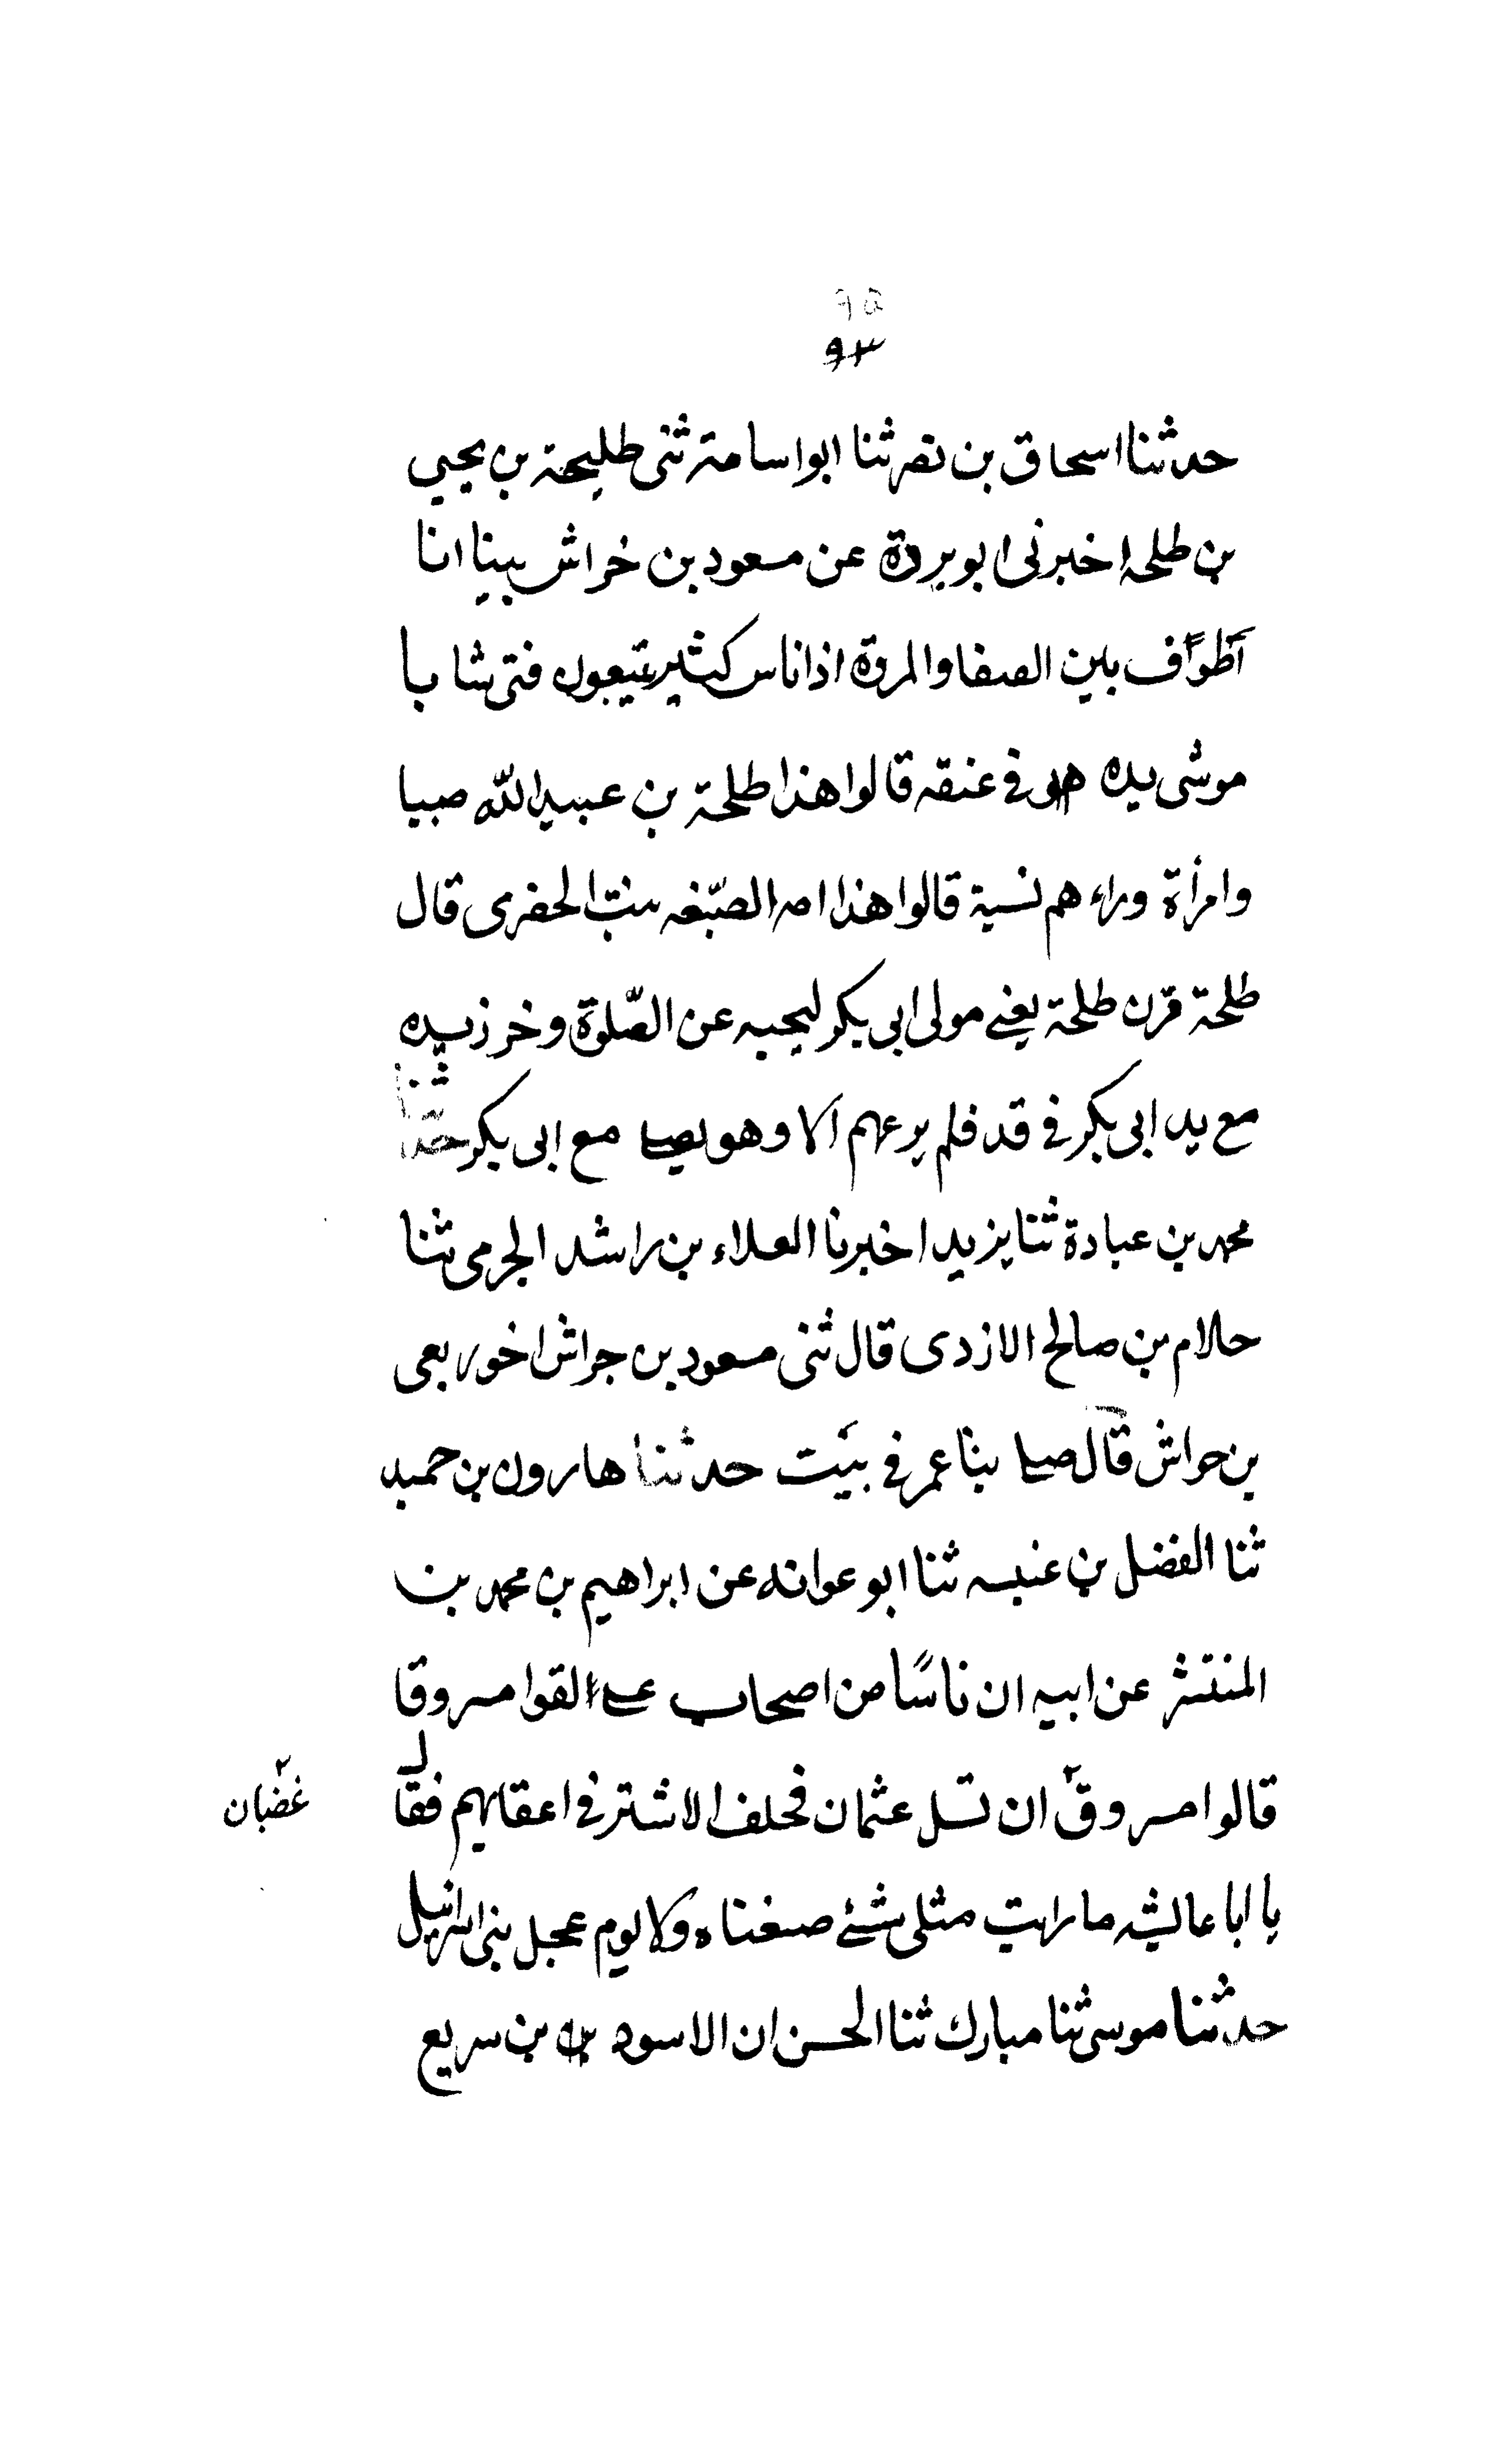 ٩٥
٩٣
حدثنا اسحاق بن نصر ثنا ابو اسامة ثنى طليحة بن يحيي
بن طلحه اخبرنى ابو بردة عن مسعود بن خراش بينا انا
أطوف بين الصفا والمروة اذا ناس كثير يتبعون فتى شابا
موشى يده في عنقه قالوا هذا طلحة بن عبيد الله صبيا
وامرأة وراءهم نسية قالوا هذا امه الصبغه بنت الحضرى قال
طلحة قرن طلحة يعنى مولى ابى بكر ليحبيه عن الصلوة وخرز يده
مع يد ابى بكر في قد فلم يرعهم الا وهو يصلي مع ابى بكر حدثنا
محمد بن عبادة ثنا يزيد اخبرنا العلاء بن راشد الجرمى ثنا
حلام بن صالح الازدى قال ثنى مسعود بن جراش اخو ربعى
بن حراش قال صلى بنا عمر في بيت حدثنا هارون بن حميد
ثنا الفضل بن عنبسه ثنا ابو عوانه عن ابراهيم بن محمد بن
المنتشر عن ابيه ان ناسًا من اصحاب على القوا مسروقا
قالوا مسروق ان قتل عثمان فحلف الاشتر في اعقابهم فقال
غضبان
يا ابا عائشه ما رايت مثلى شئ صنعناه ولا يوم عجل بنى اسرائيل
حدثنا موسى ثنا مبارك ثنا الحسن ان الاسود بن سريع